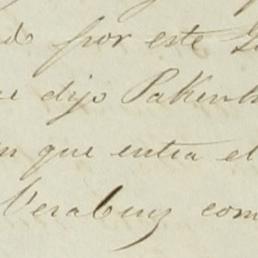 por este
dijo Pakenh
que entra el
Veracruz com